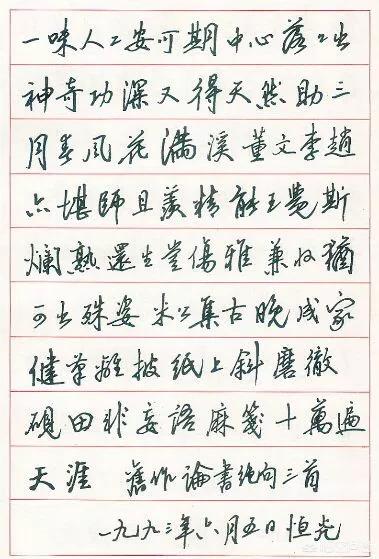 一味人工安可期中心落落出
神奇功深又得天然助三
月春風花滿溪董文李趙
亦堪師且羨精能王覺斯
爛熟還生豈傷雅兼收猶
可出殊姿米公集古晚成家
健筆離披纸上斜磨徹
硯田非妄語麻箋十萬遍
天涯 舊作論書絕句三首
一九九三年六月五日恒尧